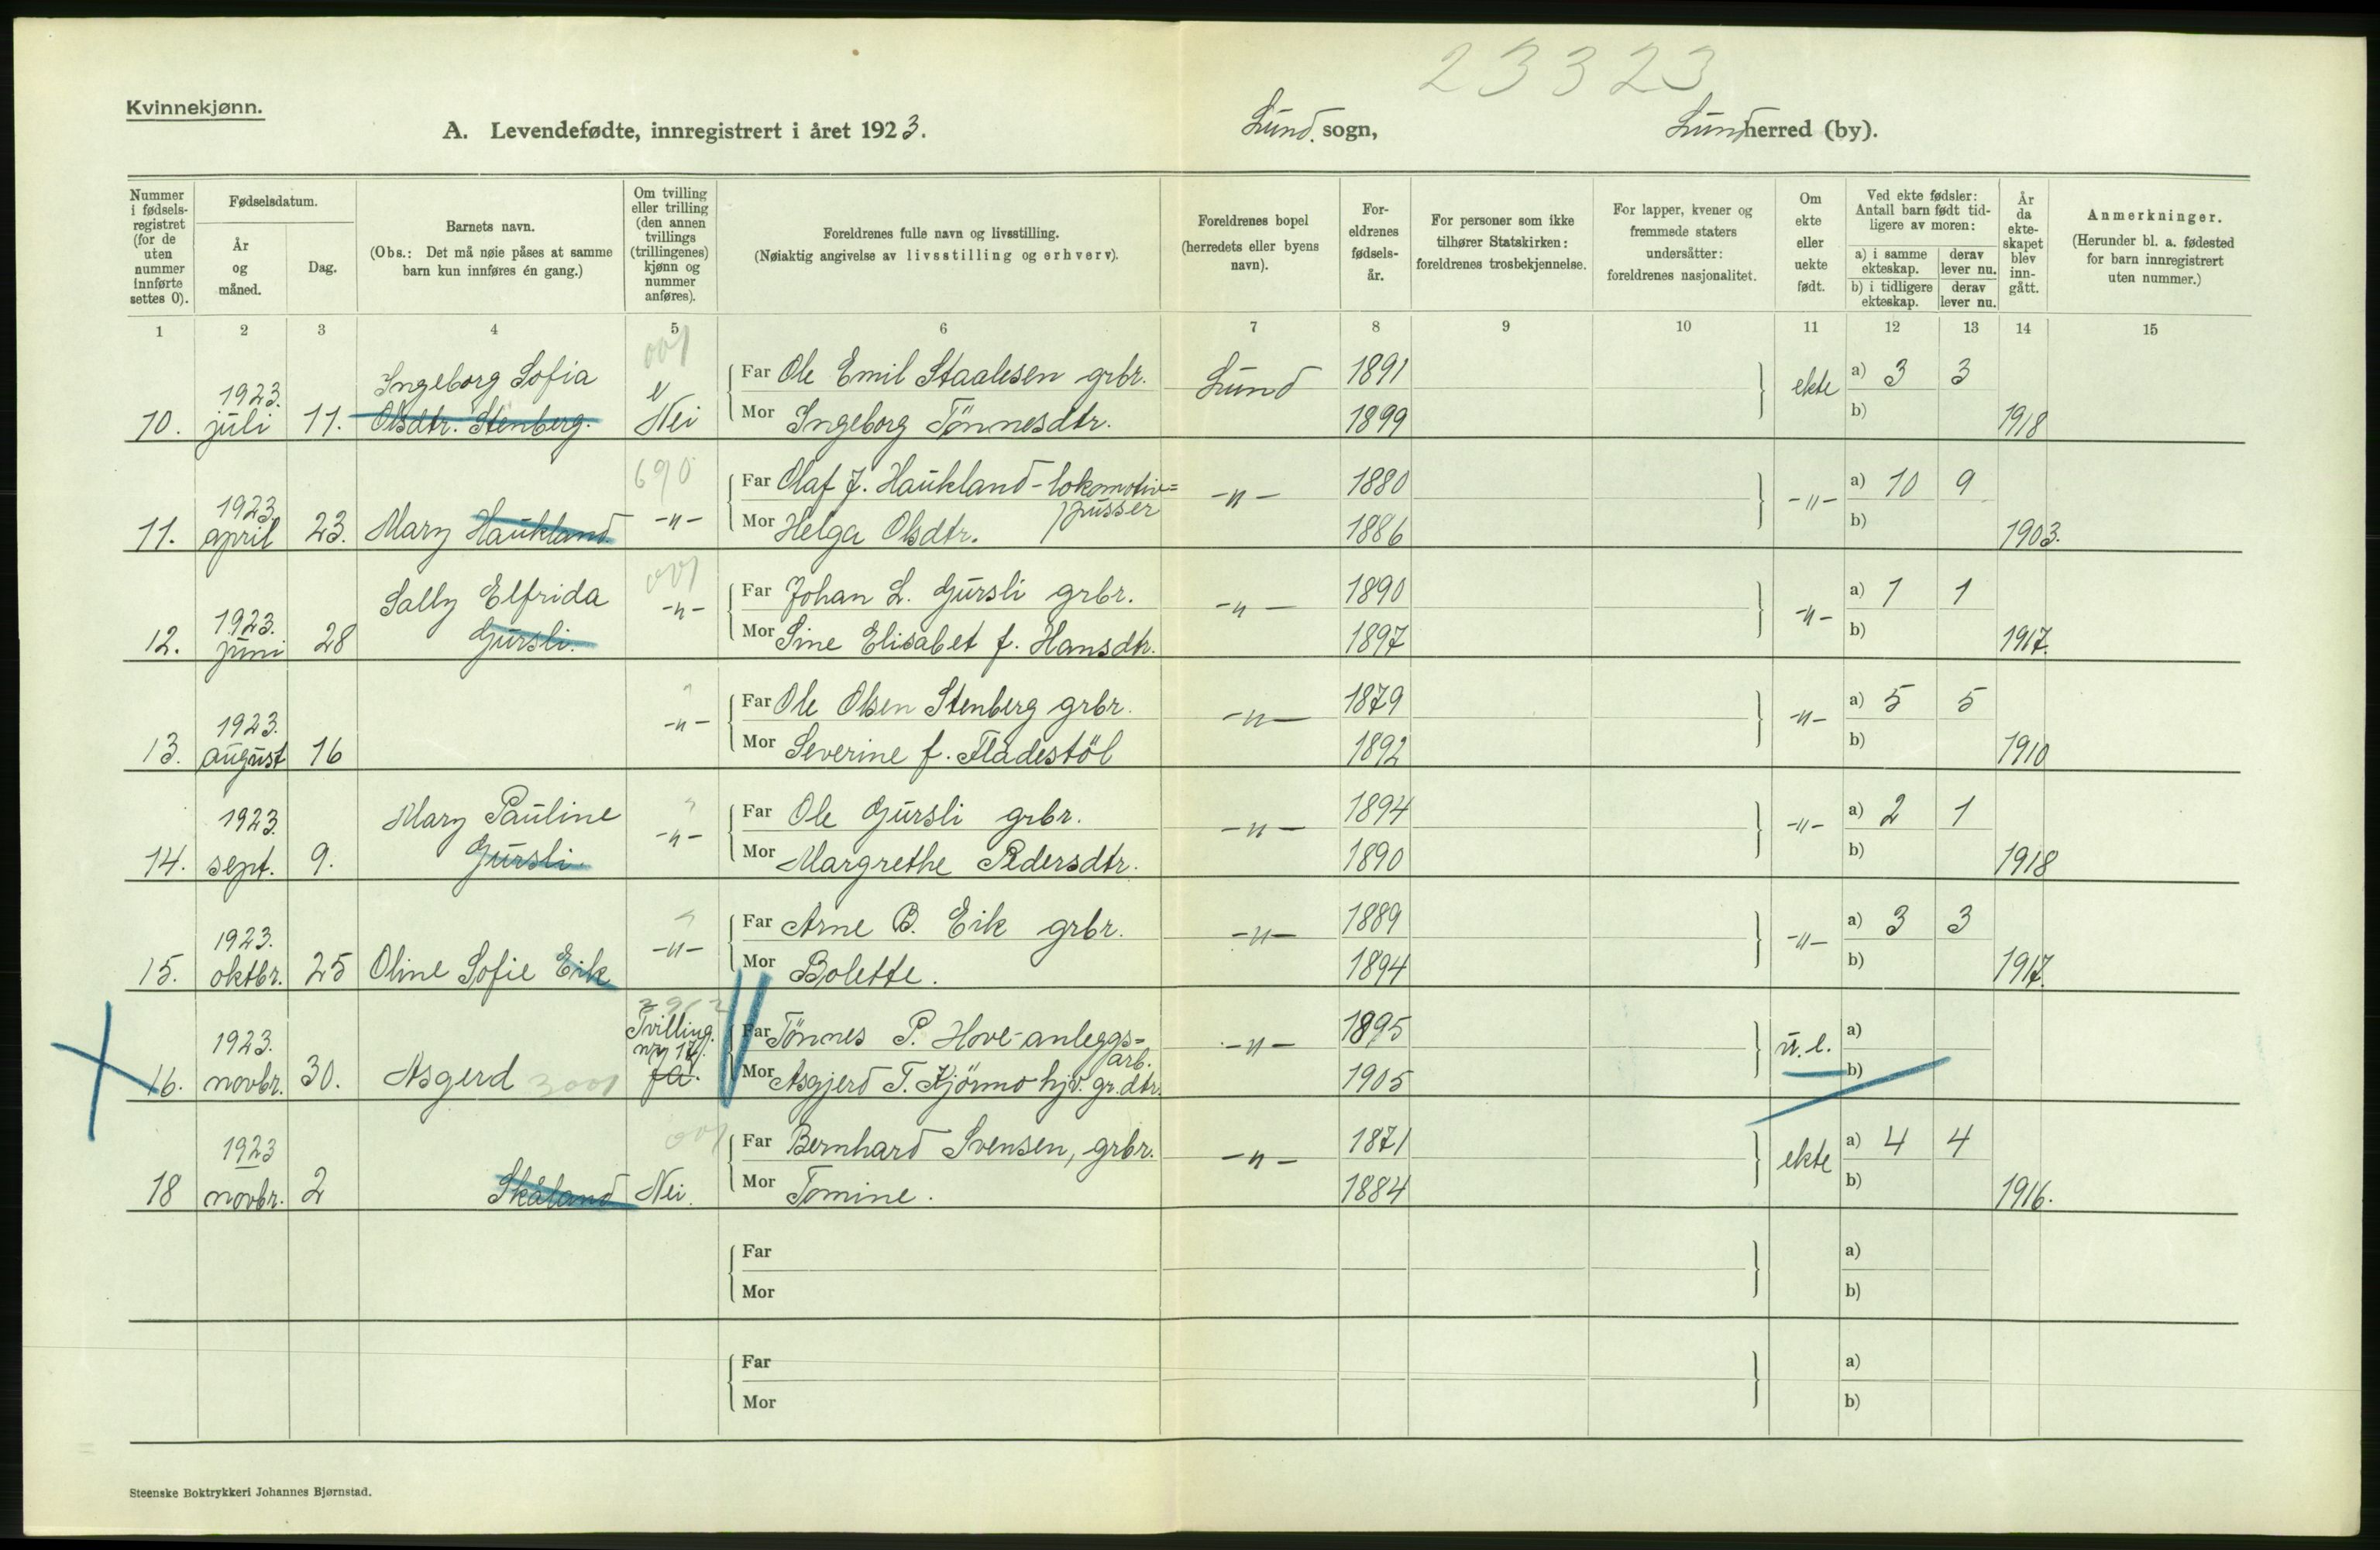 23323
Kvinnekjønn.
A. Levendefødte, innregistrert i året 1923.
Lund sogn,
Lund herred (by).
Nummer i fødsels-registret (for de uten nummer innførte settes 0).
Fødselsdatum.
År og måned.
Dag.
Barnets navn.
(Obs.: Det må nøie påses at samme barn kun innføres én gang.)
Om tvilling eller trilling (den annen tvillings (trillingenes) kjønn og nummer anføres).
Foreldrenes fulle navn og livsstilling.
(Nøiaktig angivelse av livsstilling og erhverv).
Foreldrenes bopel (herredets eller byens navn).
For-eldrenes fødsels-år.
For personer som ikke tilhører Statskirken: foreldrenes trosbekjennelse.
For lapper, kvener og fremmede staters undersåtter: foreldrenes nasjonalitet.
Om ekte eller uekte født.
Ved ekte fødsler: Antall barn født tid-ligere av moren:
a) i samme ekteskap.
derav lever nu.
b) i tidligere ekteskap.
derav lever nu.
År da ekte-skapet blev inn-gått.
Anmerkninger.
(Herunder bl. a. fødested for barn innregistrert uten nummer.)
1 2 3 4 5 6 7 8 9 10 11 12 13 14 15
001
10. 1923. juli 11. Ingeborg Sofia Olsdtr. Stenberg. Nei
Far Ole Emil Staalesen grbr. Lund 1891 ekte a) 3 3
Mor Ingeborg Tönnesdtr. 1899 b) 1918
690
11. 1923. april 23. Mary Haukland -"-
Far Olaf J. Haukland - lokomotiv= pusser -"- 1880 -"- a) 10 9
Mor Helga Olsdtr. 1886 b) 1903.
001
12. 1923. juni 28 Sally Elfrida Gursli. -"-
Far Johan L. Gursli grbr. -"- 1890 -"- a) 1 1
Mor Sine Elisabet f. Hansdtr. 1897 b) 1917.
13. 1923. august 16 -"-
Far Ole Olsen Stenberg grbr. -"- 1879 -"- a) 5 5
Mor Severine f. Fladestöl 1892 b) 1910
14. 1923. sept. 9. Mary Pauline Gursli. -"-
Far Ole Gursli grbr. -"- 1894 -"- a) 2 1
Mor Margrethe Pedersdtr. 1890 b) 1918
15. 1923. oktbr. 25 Oline Sofie Eik -"-
Far Arne B. Eik grbr. -"- 1889 -"- a) 3 3
Mor Bolette. 1894 b) 1917.
16. 1923. novbr. 30. Asgerd 3001 Tvilling. 17. ja.
Far Tönnes P. Hove - anleggs= arb. -"- 1895 u.e. a)
Mor Asgjerd T. Kjörmo hjv. gr.dtr. 1905 b)
001
18 1923 novbr. 2 Skåland Nei.
Far Bernhard Svensen, grbr. -"- 1871 ekte a) 4 4
Mor Tomine. 1884 b) 1916.
Far a)
Mor b)
Far a)
Mor b)
Steenske Boktrykkeri Johannes Bjørnstad.